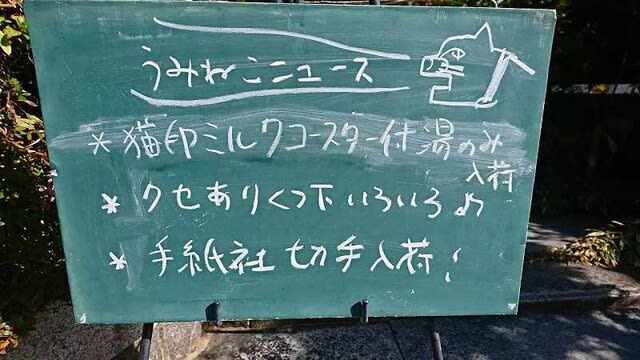 うみねこニュース
* 猫印ミルクコースター付湯のみ
入荷
* クセありくつ下いろいろ♪
* 手紙社切手入荷!